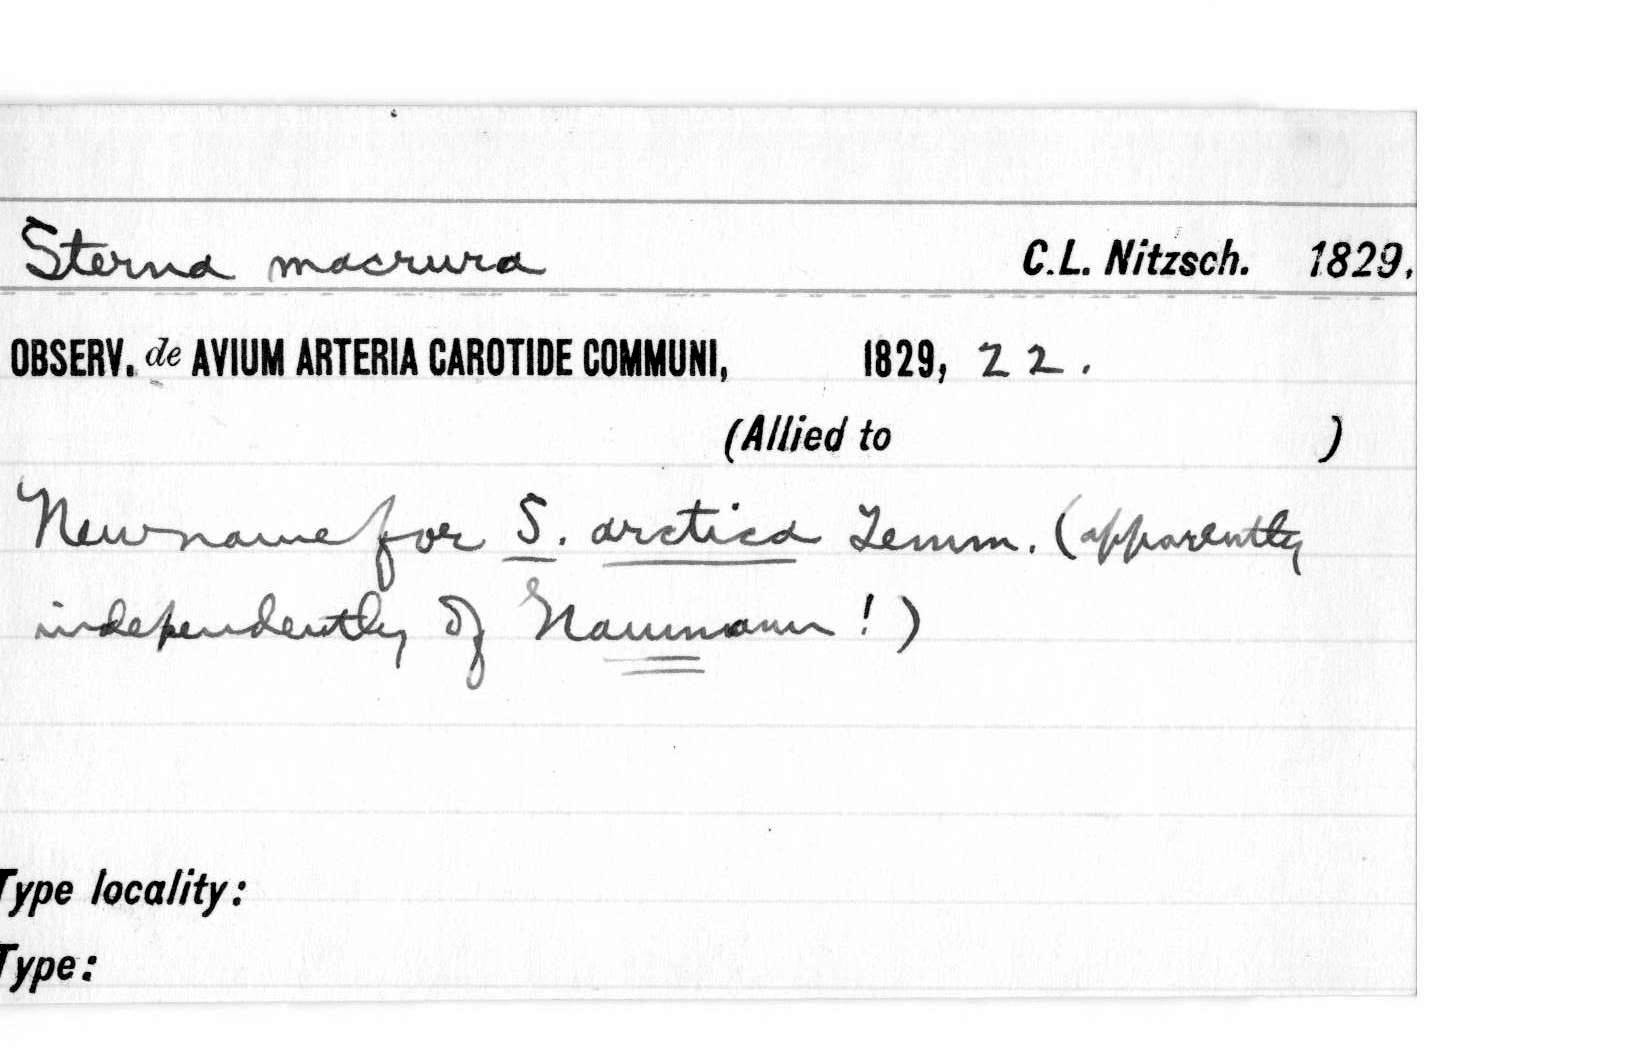 Sterna macrura C.L. Nitzsch. 1829.
OBSERV. de AVIUM ARTERIA CAROTIDE COMMUNI, 1829, 22.
(Allied to )
New name for S. arctica Temm. (apparently
independently of Naumann!)
Type locality:
Type: